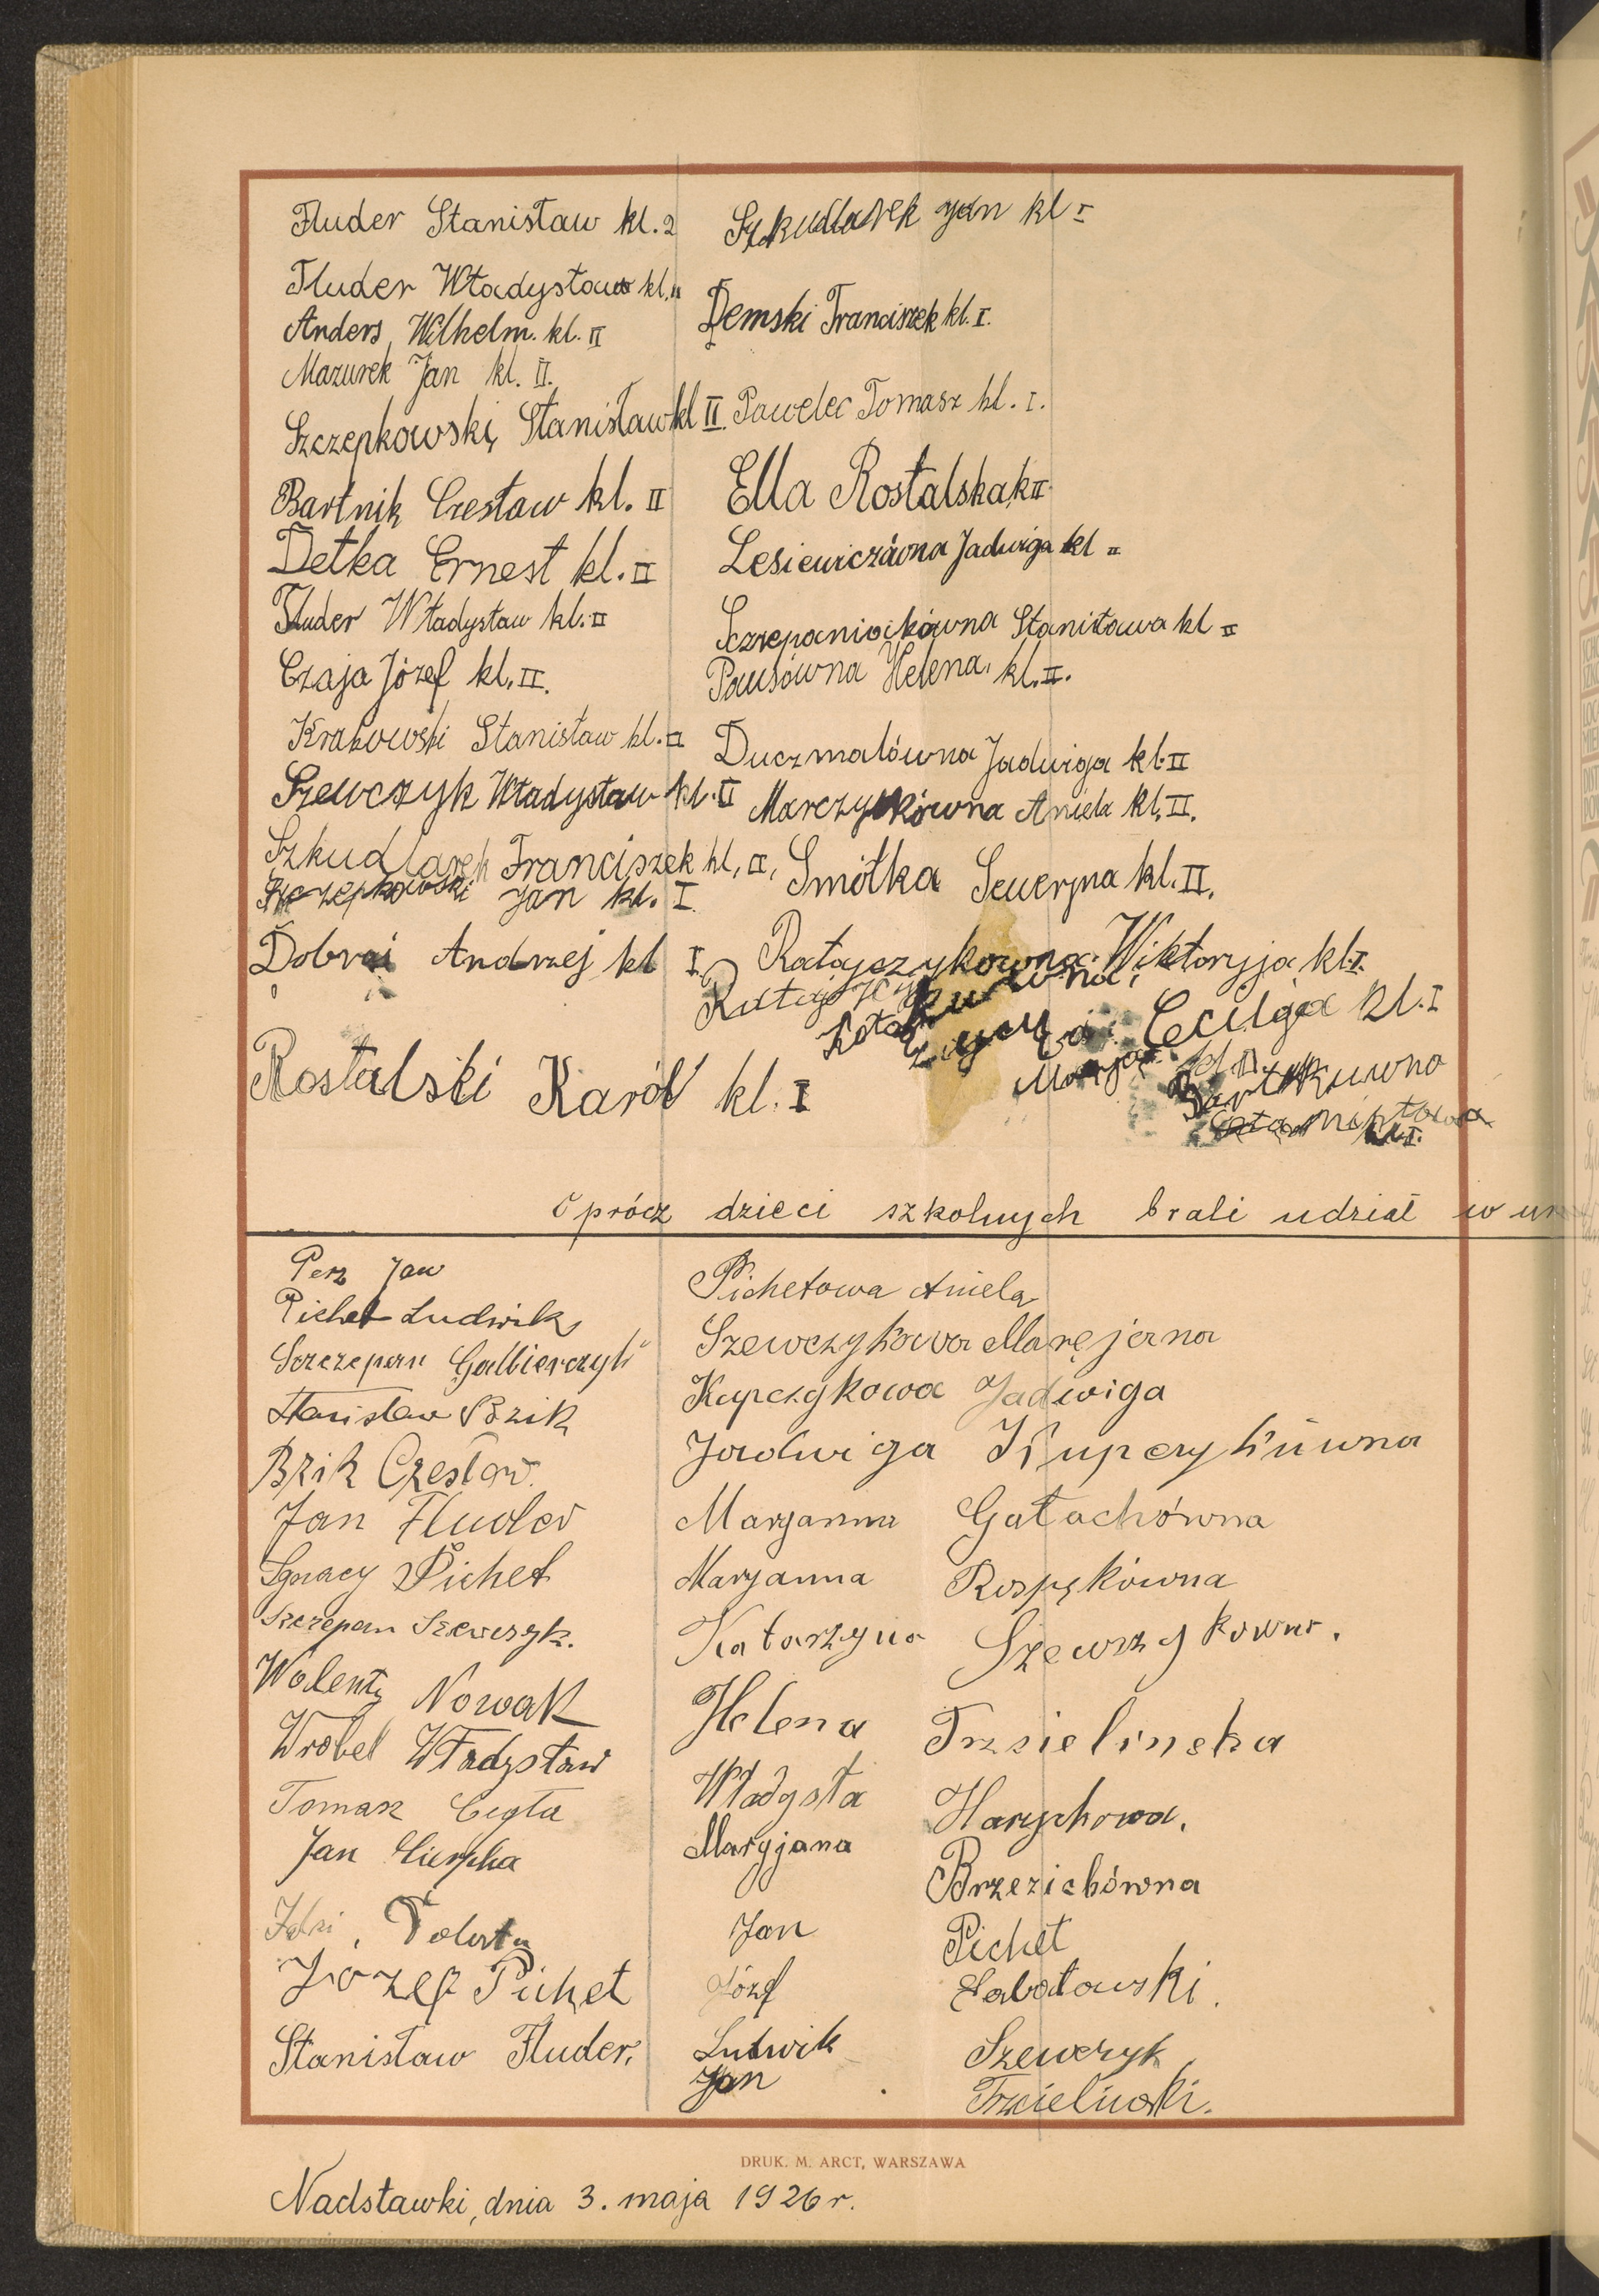 Fluder Stanisław kl. 2
Fluder Władysław kl. II
Anders Wilhelm. kl. II
Mazurek Jan kl. II.
Szczepkowski Stanisław kl II
Bartnik Czesław kl. II
Detka Ernest kl. II
Fluder Władysław kl. II
Czaja Józef kl. II.
Krakowski Stanisław kl. II
Szewczyk Władysław kl. II
Szkudlarek Franciszek kl, II,
Szczepkowski Jan kl. I.
Dobraś Andrzej kl I
Rostalski Karól kl. I
Szkudlarek Jan kl I
Demski Franciszek kl. I.
Pawelec Tomasz kl. I.
Ella Rostalska k II
Lesiewiczówna Jadwiga kl II
Szczepaniakówna Stanisława kl II
Pausówna Helena. kl. II.
Duczmalówna Jadwiga kl. II
Marczykówna Aniela kl. II.
Smiółka Seweryna kl. II.
Ratajczykowna Wiktoryja kl. I.
Cecilja kl. I
Marja kl. I
kl I.
oprócz dzieci szkolnych brali udział w
Perz Jan
Pichet Ludwik
Szczepan Galbierczyk
Stanisław Bzik
Bzik Czesław.
Jan Fluder
Ignacy Pichet
Szczepan Szewczyk.
Walenty Nowak
Wróbel Władysław
Tomasz Cegła
Jan
Józef Pichet
Stanisław Fluder.
Pichetowa Aniela
Szewczykowa Maryjana
Kupczykowa Jadwiga
Jadwiga Kupczykówna
Maryanna Gałachówna
Maryanna Rospękówna
Katarzyna Szewczykowna.
Helena Trzsielinska
Władysła Harychowa.
Maryjana Brzezichówna
Jan Pichet
Józef Zabotowski.
Ludwik Szewczyk
Jan Trzcielinski.
DRUK. M. ARCT, WARSZAWA
Nadstawki, dnia 3. maja 1926 r.